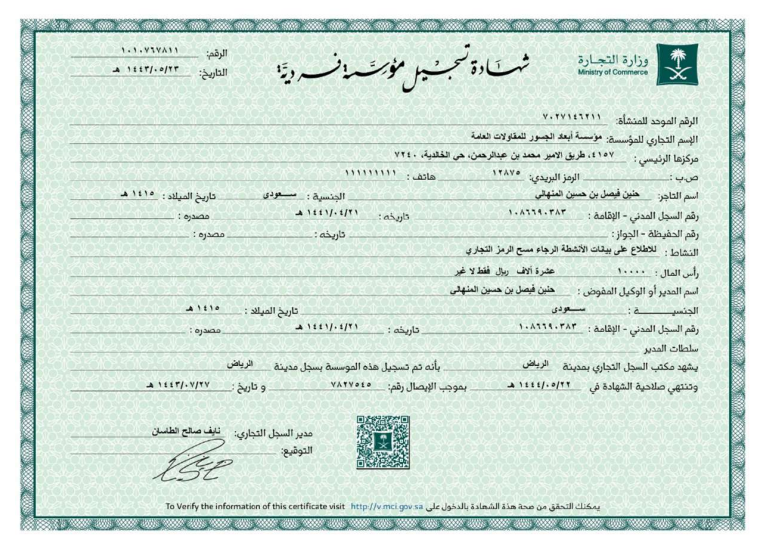 وزارة التجارة
Ministry of Commerce
شهادة تسجيل مؤسسة فردية
الرقم: ١٠١٠٧٦٧٨١١
التاريخ: ١٤٤٣/٠٥/٢٣ هـ
الرقم الموحد للمنشأة: ٧٠٢٧١٤٦٢١١
الإسم التجاري للمؤسسة: مؤسسة أبعاد الجسور للمقاولات العامة
مركزها الرئيسي : ٤١٥٧، طريق الامير محمد بن عبدالرحمن، حي الخالدية، ٧٢٤٠
ص.ب : الرمز البريدي: ١٢٨٧٥ هاتف : ١١١١١١١١١
اسم التاجر: حنين فيصل بن حسين المنهالي الجنسية : سعودى تاريخ الميلاد : ١٤١٥ هـ
رقم السجل المدني - الإقامة : ١٠٨٦٦٩٠٣٨٣ تاريخه : ١٤٤١/٠٤/٢١ هـ مصدره :
رقم الحفيظة - الجواز : تاريخه : مصدره :
النشاط : للاطلاع على بيانات الأنشطة الرجاء مسح الرمز التجاري
رأس المال : ١٠٠٠٠ عشرة آلاف ريال فقط لا غير
اسم المدير أو الوكيل المفوض : حنين فيصل بن حسين المنهالي
الجنسيـــة : سعودى تاريخ الميلاد : ١٤١٥ هـ
رقم السجل المدني - الإقامة : ١٠٨٦٦٩٠٣٨٣ تاريخه : ١٤٤١/٠٤/٢١ هـ مصدره :
سلطات المدير
يشهد مكتب السجل التجاري بمدينة الرياض بأنه تم تسجيل هذه الموسسة بسجل مدينة الرياض
وتنتهي صلاحية الشهادة في ١٤٤٤/٠٥/٢٢ هـ بموجب الإيصال رقم: ٧٨٢٧٥٤٥ و تاريخ : ١٤٤٣/٠٧/٢٧ هـ
مدير السجل التجاري: نايف صالح الطاسان
التوقيع:
يمكنك التحقق من صحة هذة الشهادة بالدخول على To Verify the information of this certificate visit http://v.mci.gov.sa